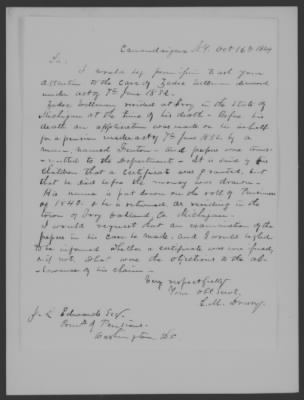 Canandaigua N.Y. Oct 16th 1849
Sir,
I would beg permission to ask your
attention to the case of Zadoc Wellman deceased
under act of 7th June 1832.
Zadoc Wellman resided at Troy in the State of
Michigan at the time of his death. Before his
death an application was made on his behalf
for a pension under act of 7th June 1832 by a
man named Denton - and papers were trans-
mitted to the Department - It is said by his
children that a certificate was granted, but
that he died before the money was drawn -
His name is put down on the roll of Pensioners
of 1840. & he is returned as residing in the
town of Troy Oakland Co Michigan.
I would request that an examination of the
papers in his case be made and I would be glad
to be informed whether a certificate was ever issued,
& if not. What were the objections to the al-
lowance of his claim -
Very respectfully
Your Obt Servt,
L.M. Drury,
J. L. Edwards Esq.
Com. of Pensions.
Washington DC